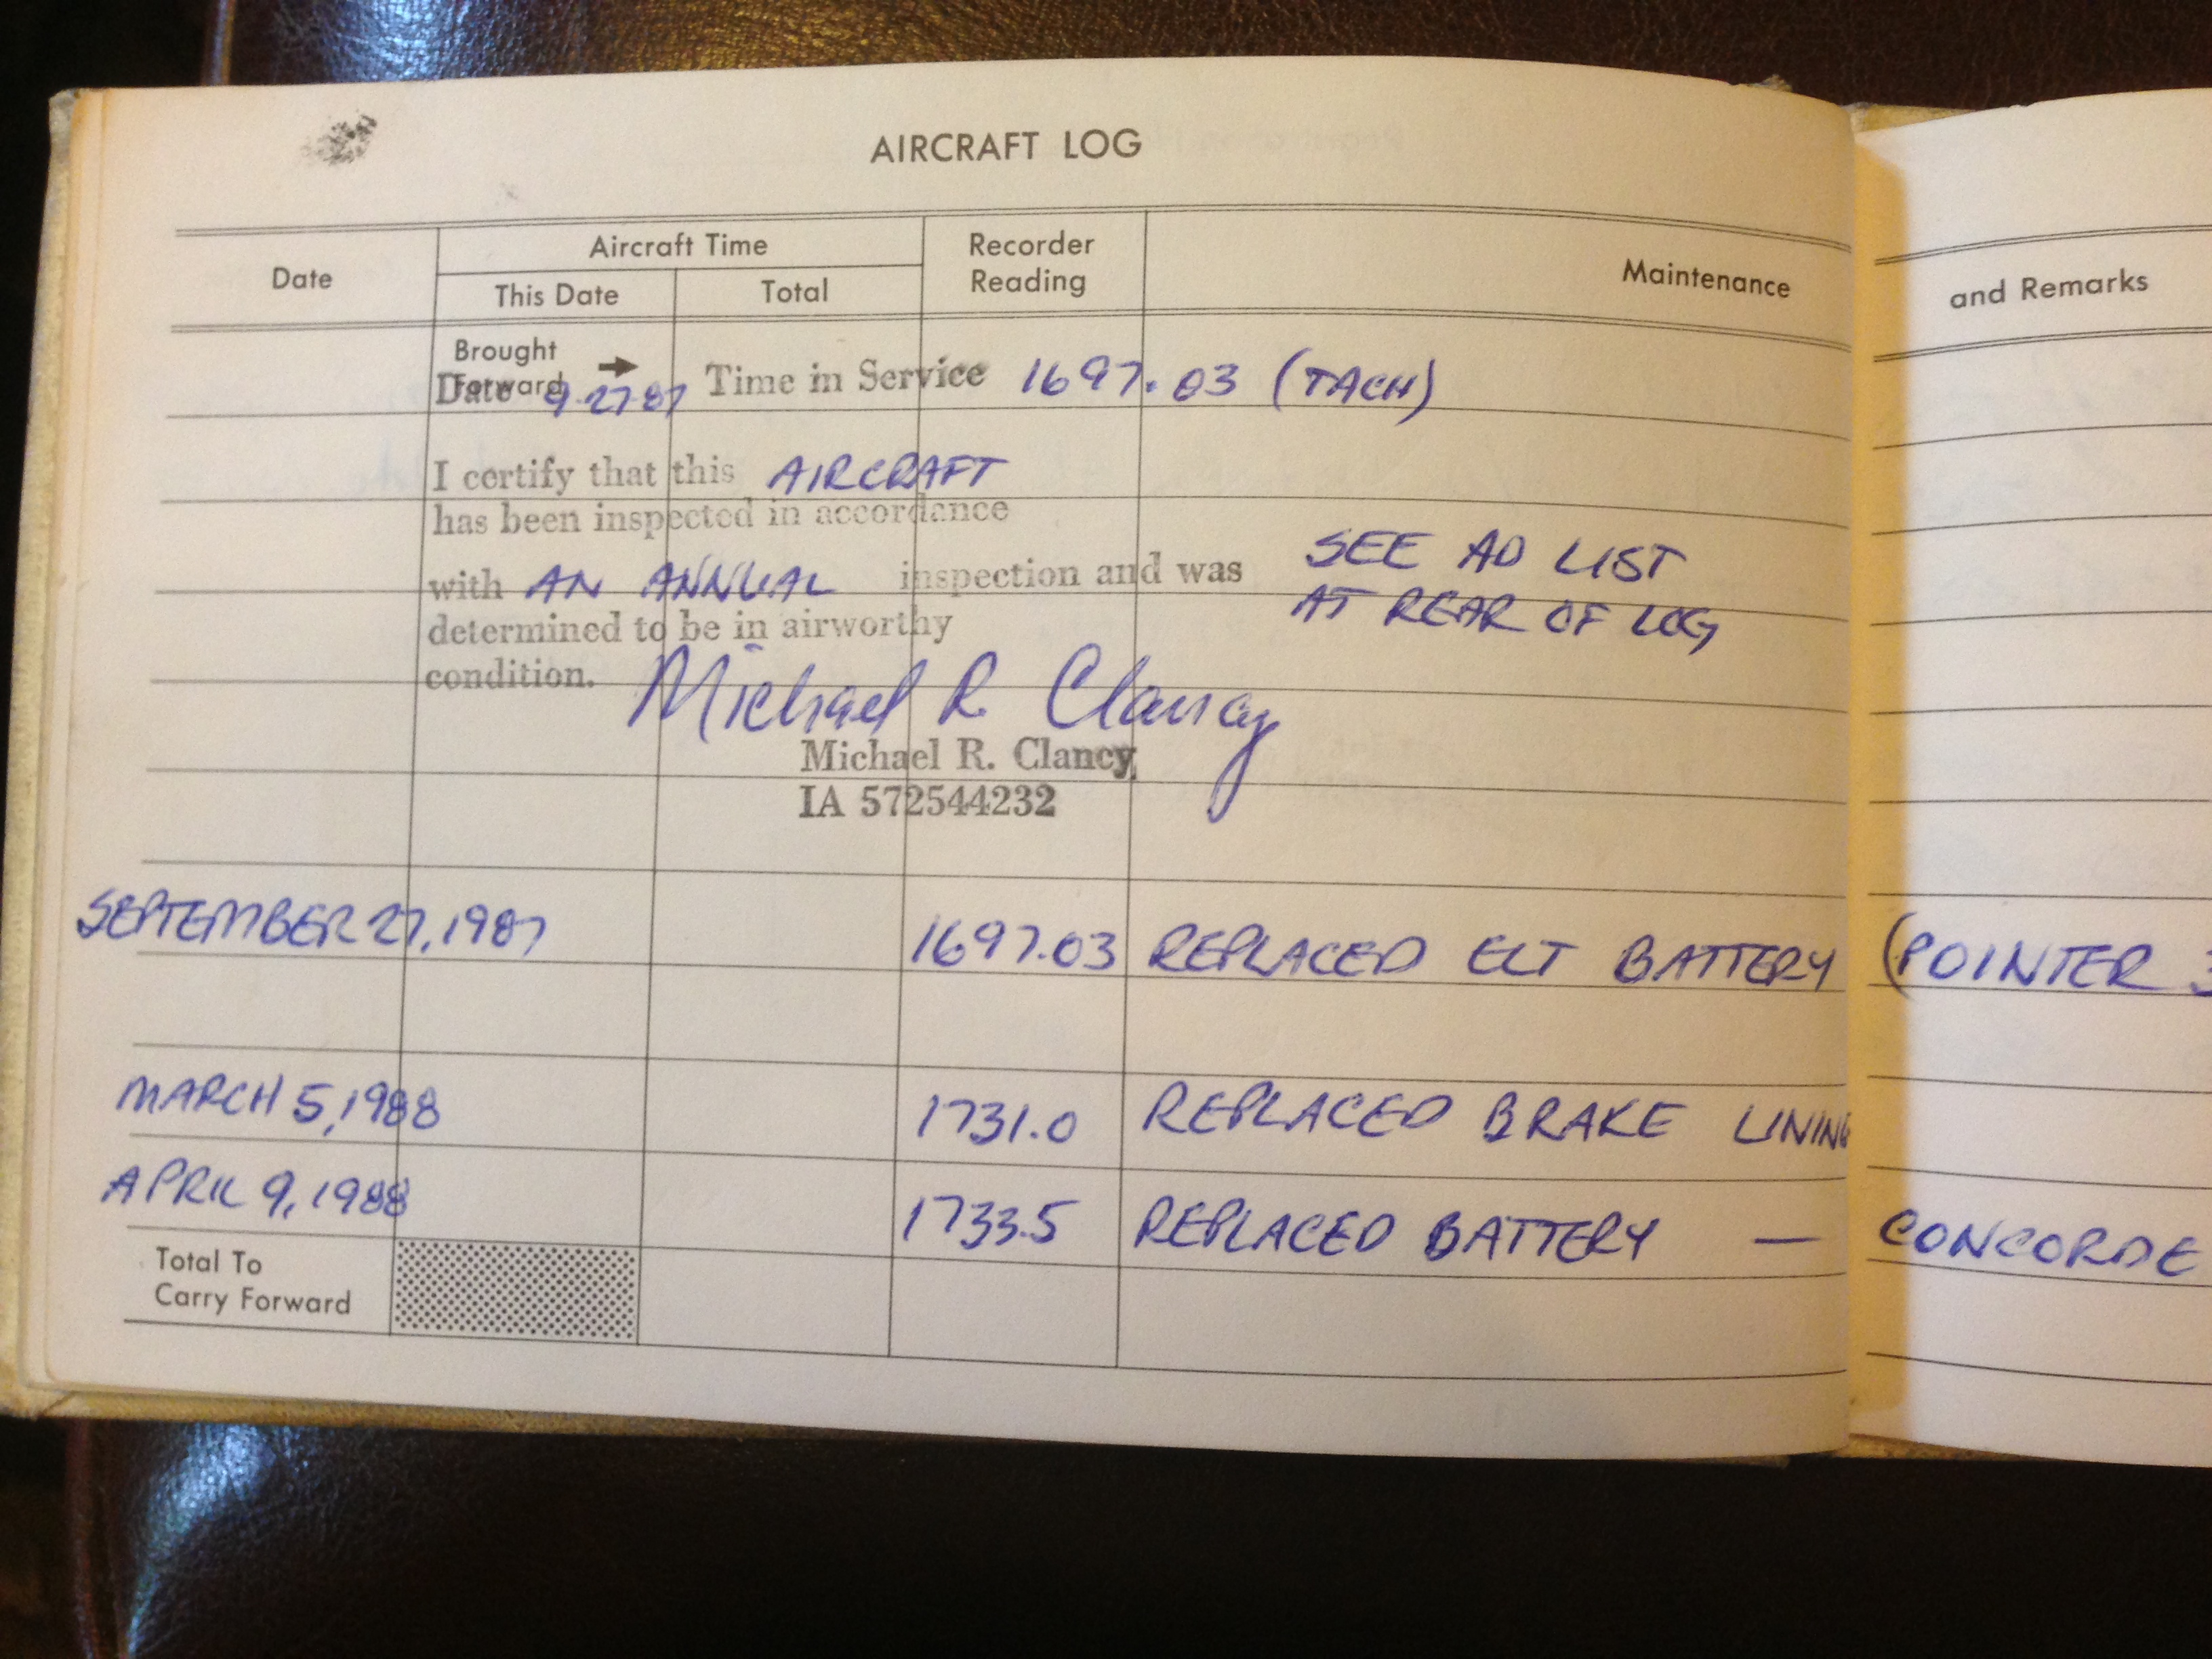 AIRCRAFT LOG
Date
Aircraft Time
This Date
Total
Recorder
Reading
Maintenance
and Remarks
Brought
Forward
Date 9-27-87 Time in Service 1697.03 (TACH)
I certify that this AIRCRAFT
has been inspected in accordance
with AN ANNUAL inspection and was
determined to be in airworthy
condition.
SEE AD LIST
AT REAR OF LOG
Michael R. Clancy
Michael R. Clancy
IA 572544232
SEPTEMBER 27, 1987 1697.03 REPLACED ELT BATTERY (POINTER 3
MARCH 5, 1988 1731.0 REPLACED BRAKE LINING
APRIL 9, 1988 1733.5 REPLACED BATTERY — CONCORDE
Total To
Carry Forward